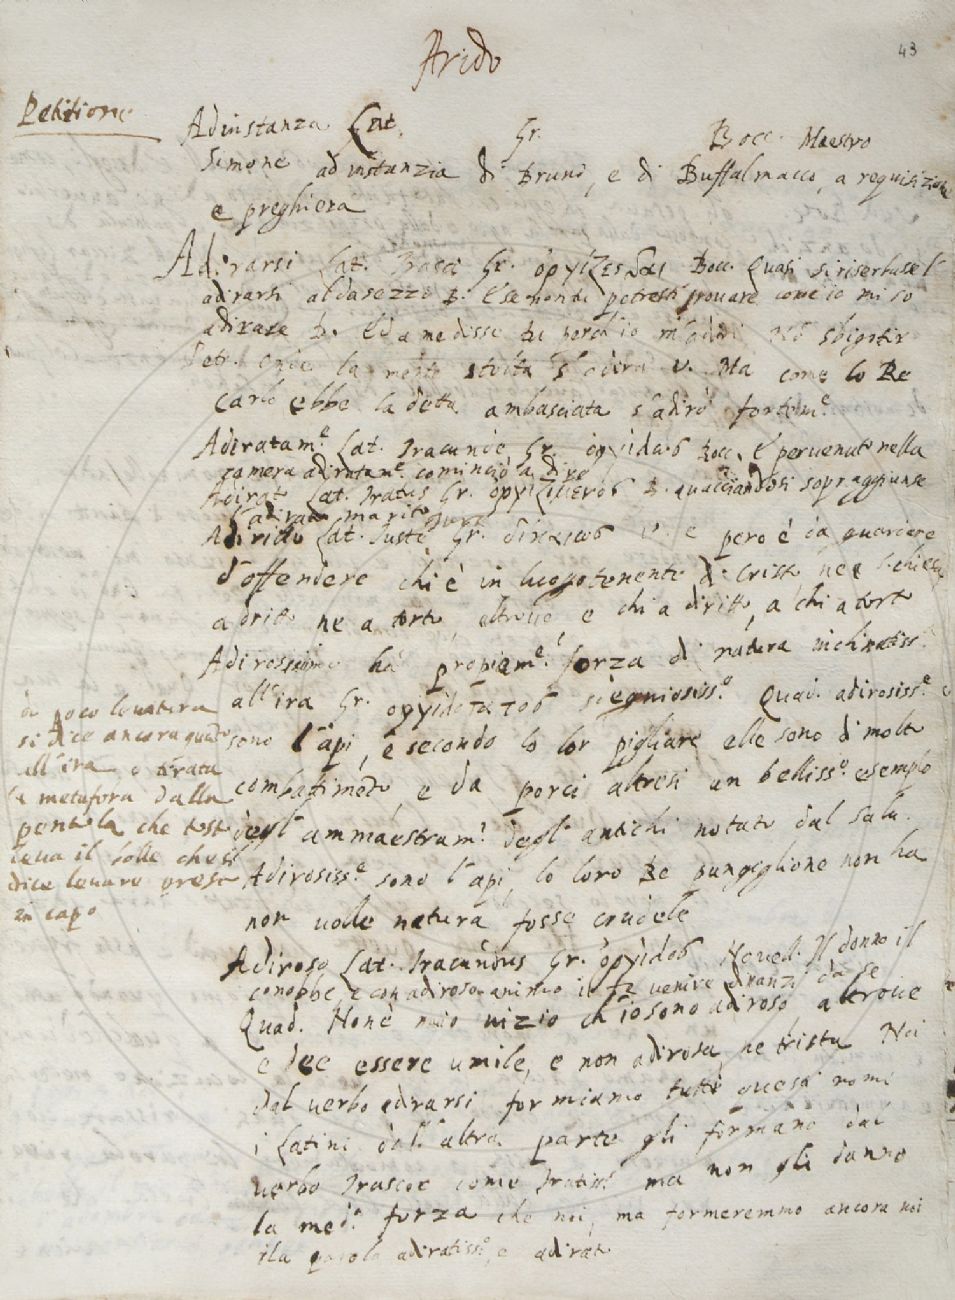 Arido
43
Petitione
Adinstanza Lat. Gr. Bocc. Maestro
Simone ad instanzia di Bruno, e di Buffalmacco, a requisizione
e preghiera
Adirarsi Lat. Irasci Gr. ὀργίζεσθαι Bocc. Quasi
adirarsi al dasezzo B. E se non ti potessi provare come io mi so
adirare B. Ed a me disse tu perch'io m'adiri Nō sbigottir
Petr. Onde la mente stolta s'adira V. Ma come lo Re
Carlo ebbe la detta ambasciata s'adirò fortem.e
Adiratam.e Lat. Iracunde Gr. Bocc. E pervenuto nella
camera adiratam.e cominciò a dire
Adirat Lat. Iratus Gr. B. sopraggiunse
l'adirato marito
Adiritto Lat. Juste Gr. δικαιως V. e però è da guardare
d'offendere chi è in luogotenente di Cristo, ne s. chiesa
a dritto ne a torto, altrove e chi a diritto, a chi a torto
Adirossimo ha propiam.e forza di natura inchinatiss.
all'ira Gr. Quad. adirosiss.e
sono l'api, e secondo lo lor pigliare elle sono di molto
combattimēto, e da porci altresì un belliss.o esemplo
degl' ammaestram.i degl' antichi notato dal Salu.
Adirosiss.e sono l'api, lo loro Re pungiglione non ha
non volle natura fosse crudele
di poco levatura
si dice ancora quādo
all'ira o tirata
la metafora dalla
pentola che tosto
leva il bolle che si
dice levare presto
in capo
Adiroso Lat. Iracundus Gr. Novel. Il donno il
conobbe, e con adiroso animo il fe venire dinanzi da se
Quad. Non è mio vizio ch'io sono adiroso, altrove
e dee essere umile, e non adirosa, ne trista Noi
dal verbo adirarsi formiamo tutti questi nomi
i Latini dall'altra parte gli formano dal
verbo Irascor come ma non gli danno
la med.a forza che noi, ma formeremmo ancora noi
la parola adiratiss.o, e adirato